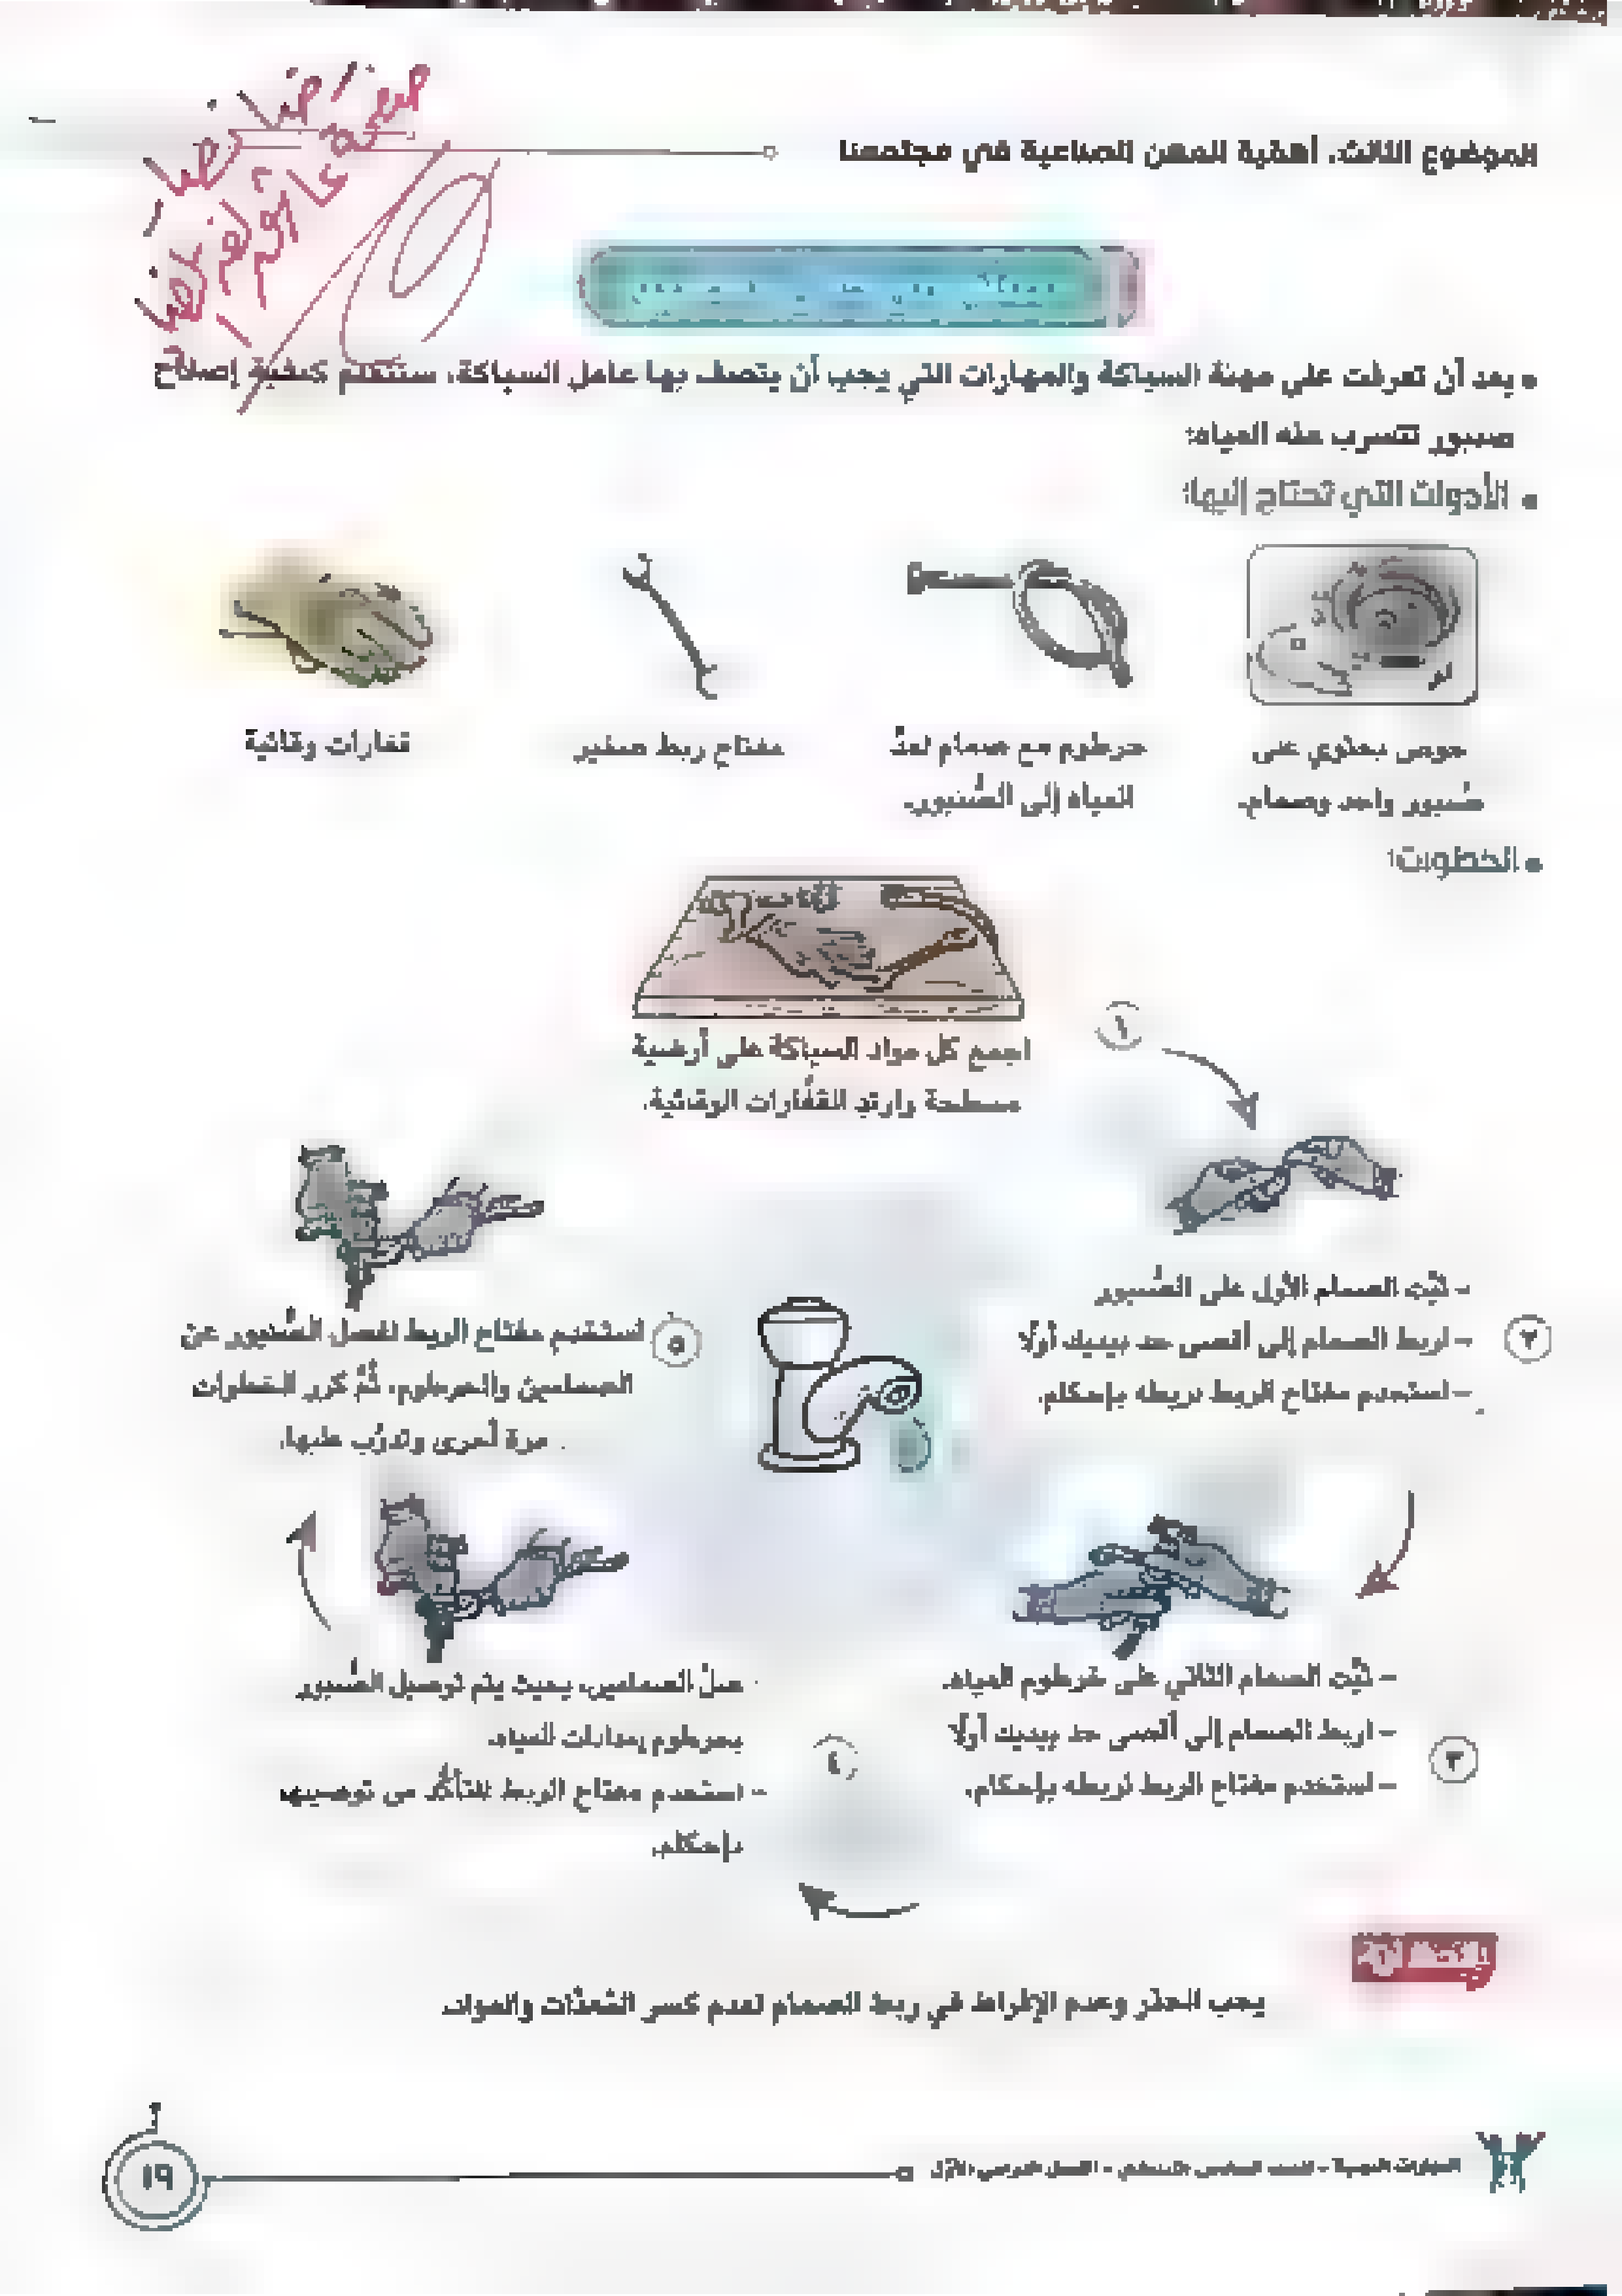 الموضوع الثالث: أهمية المهن الصناعية في مجتمعنا
• بعد أن تعرفت على مهنة السباكة والمهارات التي يجب أن يتصف بها عامل السباكة، ستتعلم كيفية إصلاح
صنبور تتسرب منه المياه:
• الأدوات التي تحتاج إليها:
حوض يحتوي على
صُنبور واحد وصمام.
خرطوم مع صمام لمدّ
المياه إلى الصُّنبور.
مفتاح ربط صغير
قفازات وقائية
• الخطوات:
١
اجمع كل مواد السباكة على أرضية
مسطحة وارتدِ القفَّازات الوقائية.
٢
- ثبِّت الصمام الأول على الصُّنبور
- اربط الصمام إلى أقصى حد بيديك أولًا
- استخدم مفتاح الربط لربطه بإحكام.
٣
- ثبِّت الصمام الثاني على خرطوم المياه.
- اربط الصمام إلى أقصى حد بيديك أولًا
- استخدم مفتاح الربط لربطه بإحكام.
٤
- صلْ الصمامين، بحيث يتم توصيل الصُّنبور
بخرطوم إمدادات المياه.
- استخدم مفتاح الربط للتأكُّد من توصيلها
بإحكام.
٥
استخدم مفتاح الربط لفصل الصُّنبور عن
الصمامين والخرطوم، ثُمَّ كرر الخطوات
مرة أخرى وتدرَّب عليها.
يجب الحذر وعدم الإفراط في ربط الصمام لعدم كسر المُعدَّات والمواد.
المهارات المهنية - الصف السادس الابتدائي - الفصل الدراسي الأول
١٩